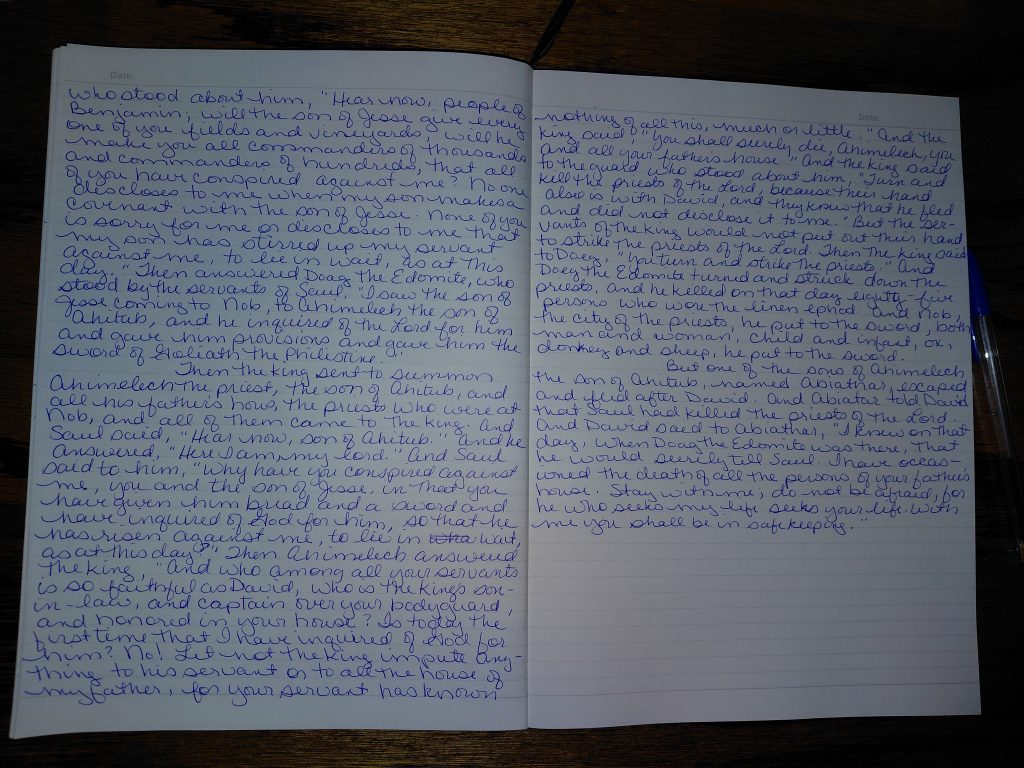 Date
who stood about him, "Hear now, people of
Benjamin; will the son of Jesse give every
one of you fields and vineyards, will he
make you all commanders of thousands
and commanders of hundreds, that all
of you have conspired against me? No one
discloses to me when my son makes a
covenant with the son of Jesse. None of you
is sorry for me or discloses to me that
my son has stirred up my servant
against me, to lie in wait, as at this
day." Then answered Doag the Edomite, who
stood by the servants of Saul, "I saw the son of
Jesse coming to Nob, to Ahimelech the son of
Ahitub, and he inquired of the Lord for him
and gave him provisions and gave him the
sword of Goliath the Philistine."
Then the king sent to summon
Ahimelech the priest, the son of Ahitub, and
all his father's hows, the priests who were at
Nob, and all of them came to the king. And
Saul said, "Hear now, son of Ahitub." And he
answered, "Here I am, my lord." And Saul
said to him, "Why have you conspired against
me, you and the son of Jesse, in that you
have given him bread and a sword and
have inquired of God for him, so that he
has risen against me, to lie in wait,
as at this day?" Then Ahimelech answered
the king, "And who among all your servants
is so faithful as David, who is the king's son-
in-law, and captain over your bodyguard,
and honored in your house? Is today the
first time that I have inquired of God for
him? No! Let not the king impute any-
thing to his servant or to all the house of
my father, for your servant has known
Date
nothing of all this, much or little." And the
king said, "You shall surely die, Ahimelech, you
and all your father's house." And the king said
to the guard who stood about him, "Turn and
kill the priests of the Lord, because their hand
also is with David, and they knew that he fled
and did not disclose it to me." But the ser-
vants of the king would not put out their hand
to strike the priests of the Lord. Then the king said
to Doeg, "You turn and strike the priests." And
Doeg the Edomite turned and struck down the
priests, and he killed on that day eighty-five
persons who wore the linen ephod. And Nob,
the city of the priests, he put to the sword; both
man and woman, child and infant, ox,
donkey and sheep, he put to the sword.
But one of the sons of Ahimelech
the son of Ahitub, named Abiathar, escaped
and fled after David. And Abiatar told David
that Saul had killed the priests of the Lord.
And David said to Abiathar, "I knew on that
day, when Doag the Edomite was there, that
he would surely tell Saul. I have occas-
ioned the death of all the persons of your father's
house. Stay with me; do not be afraid, for
he who seeks my life seeks your life. With
me you shall be in safekeeping."